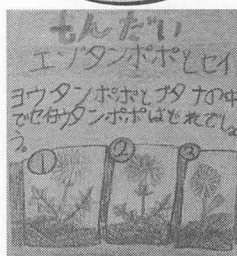 もんだい
エゾタンポポとセイ
ヨウタンポポとブタナの中
でセイヨウタンポポはどれでしょ
う。
① ② ③